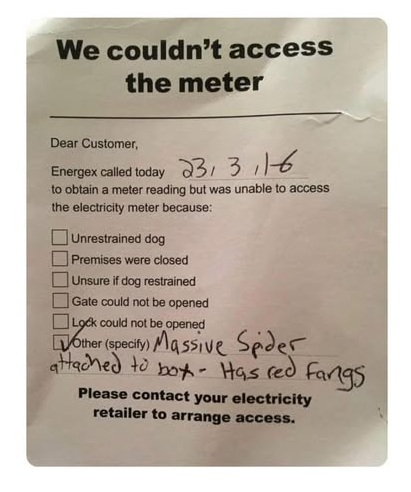 We couldn't access
the meter
Dear Customer,
Energex called today 23, 3, 16
to obtain a meter reading but was unable to access
the electricity meter because:
Unrestrained dog
Premises were closed
Unsure if dog restrained
Gate could not be opened
Lock could not be opened
Other (specify) Massive Spider
attached to box - Has red fangs
Please contact your electricity
retailer to arrange access.